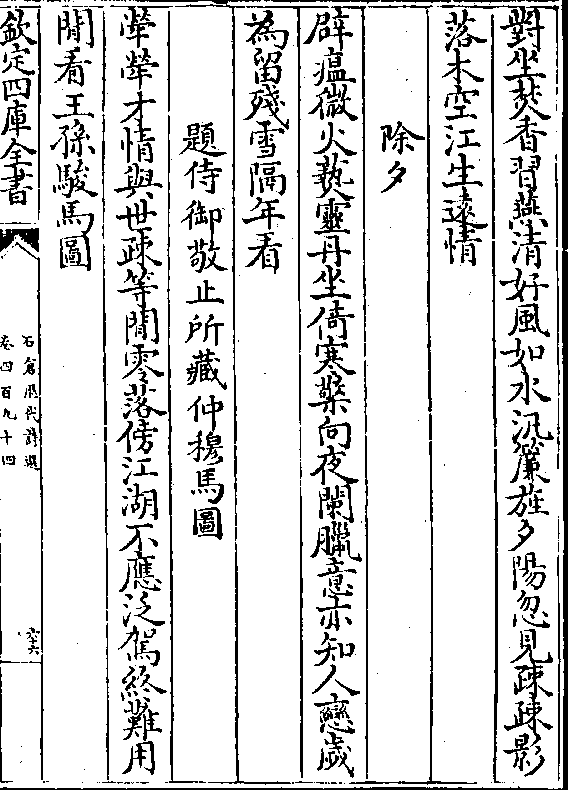 對坐焚香習燕清好風如水汎簾旌夕陽忽見疎疎影
落木空江生遠情
除夕
辟瘟微火爇靈丹坐倚寒檠向夜闌臘意亦知人戀歲
為留殘雪隔年看
題侍御敬止所藏仲穆馬圖
犖犖才情與世疎等閒零落傍江湖不應泛駕終難用
閒看王孫駿馬圖
欽定四庫全書
石倉歷代詩選
卷四百九十四
六十六